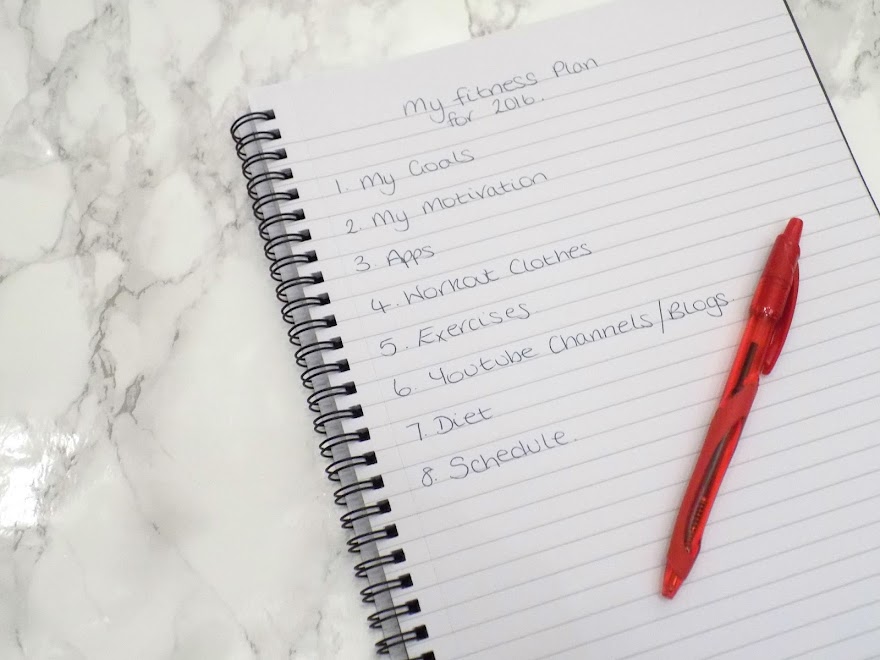 My fitness Plan
for 2016.
1. My Goals
2. My Motivation
3 Apps
4. Workout Clothes
5. Exercises
6. Youtube Channels/Blogs
7. Diet
8. Schedule.